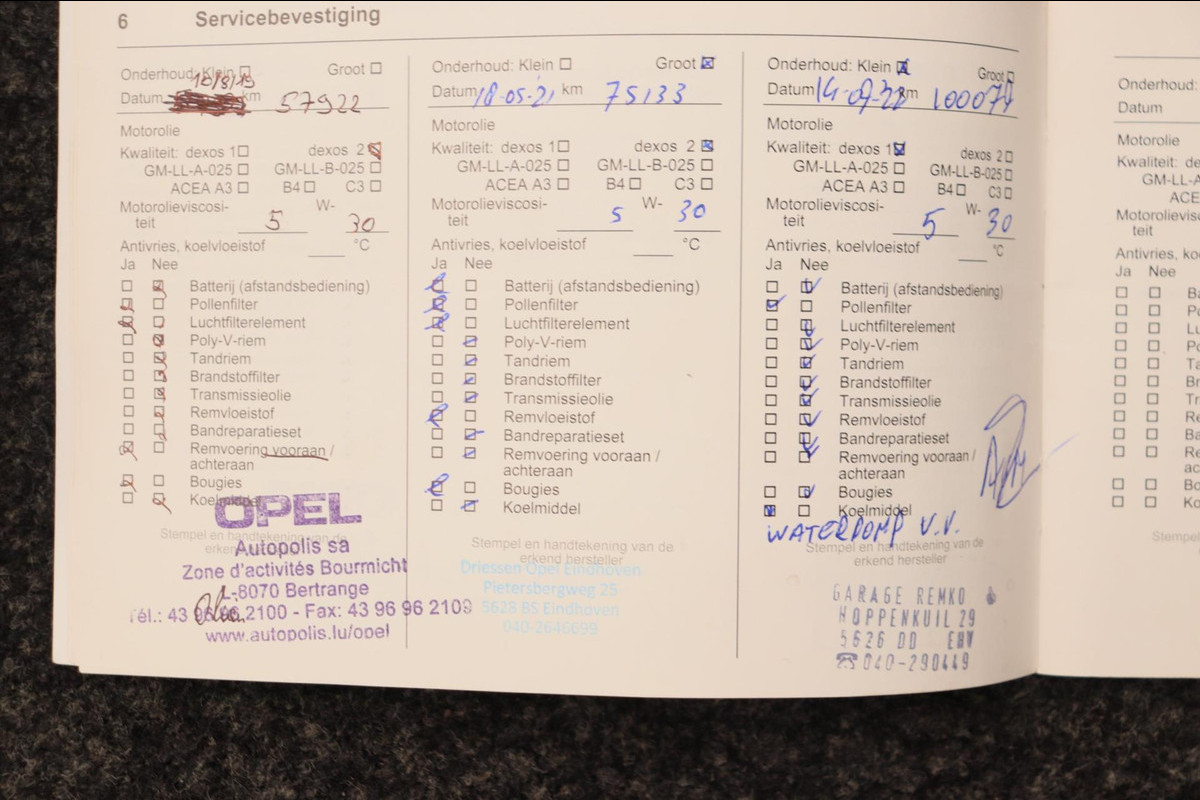 6 Servicebevestiging
Onderhoud: Klein ☐ Groot ☐
10/8/19
Datum km 57922
Motorolie
Kwaliteit: dexos 1 ☐ dexos 2 ☒
GM-LL-A-025 ☐ GM-LL-B-025 ☐
ACEA A3 ☐ B4 ☐ C3 ☐
Motorolieviscosi-
teit 5 W- 30
Antivries, koelvloeistof °C
Ja Nee
☐ ☒ Batterij (afstandsbediening)
☒ ☐ Pollenfilter
☒ ☐ Luchtfilterelement
☐ ☒ Poly-V-riem
☐ ☒ Tandriem
☐ ☒ Brandstoffilter
☐ ☒ Transmissieolie
☐ ☒ Remvloeistof
☐ ☒ Bandreparatieset
☒ ☐ Remvoering vooraan /
achteraan
☒ ☐ Bougies
☐ ☒ Koelmiddel
OPEL
Stempel en handtekening van de
Autopolis sa
Zone d'activités Bourmicht
L-8070 Bertrange
Tél.: 43 96 96 2100 - Fax: 43 96 96 2109
www.autopolis.lu/opel
Onderhoud: Klein ☐ Groot ☒
Datum 18-05-21 km 75133
Motorolie
Kwaliteit: dexos 1 ☐ dexos 2 ☒
GM-LL-A-025 ☐ GM-LL-B-025 ☐
ACEA A3 ☐ B4 ☐ C3 ☐
Motorolieviscosi-
teit 5 W- 30
Antivries, koelvloeistof °C
Ja Nee
☒ ☐ Batterij (afstandsbediening)
☒ ☐ Pollenfilter
☒ ☐ Luchtfilterelement
☐ ☒ Poly-V-riem
☐ ☒ Tandriem
☐ ☒ Brandstoffilter
☐ ☒ Transmissieolie
☒ ☐ Remvloeistof
☐ ☒ Bandreparatieset
☐ ☒ Remvoering vooraan /
achteraan
☒ ☐ Bougies
☐ ☒ Koelmiddel
Stempel en handtekening van de
erkend hersteller
Driessen Opel Eindhoven
Pietersbergweg 25
5628 BS Eindhoven
040-2646699
Onderhoud: Klein ☒ Groot ☐
Datum km 100077
Motorolie
Kwaliteit: dexos 1 ☒ dexos 2 ☐
GM-LL-A-025 ☐ GM-LL-B-025 ☐
ACEA A3 ☐ B4 ☐ C3 ☐
Motorolieviscosi-
teit 5 W- 30
Antivries, koelvloeistof °C
Ja Nee
☐ ☒ Batterij (afstandsbediening)
☒ ☐ Pollenfilter
☐ ☒ Luchtfilterelement
☐ ☒ Poly-V-riem
☐ ☒ Tandriem
☐ ☒ Brandstoffilter
☐ ☒ Transmissieolie
☐ ☒ Remvloeistof
☐ ☒ Bandreparatieset
☐ ☒ Remvoering vooraan /
achteraan
☐ ☒ Bougies
☒ ☐ Koelmiddel
WATERPOMP V.V.
Stempel en handtekening van de
erkend hersteller
GARAGE REMKO
HOPPENKUIL 29
5626 DD EHV
☎ 040-290449
Onderhoud:
Datum
Motorolie
Kwaliteit:
Motorolieviscosi-
teit
Antivries,
Ja Nee